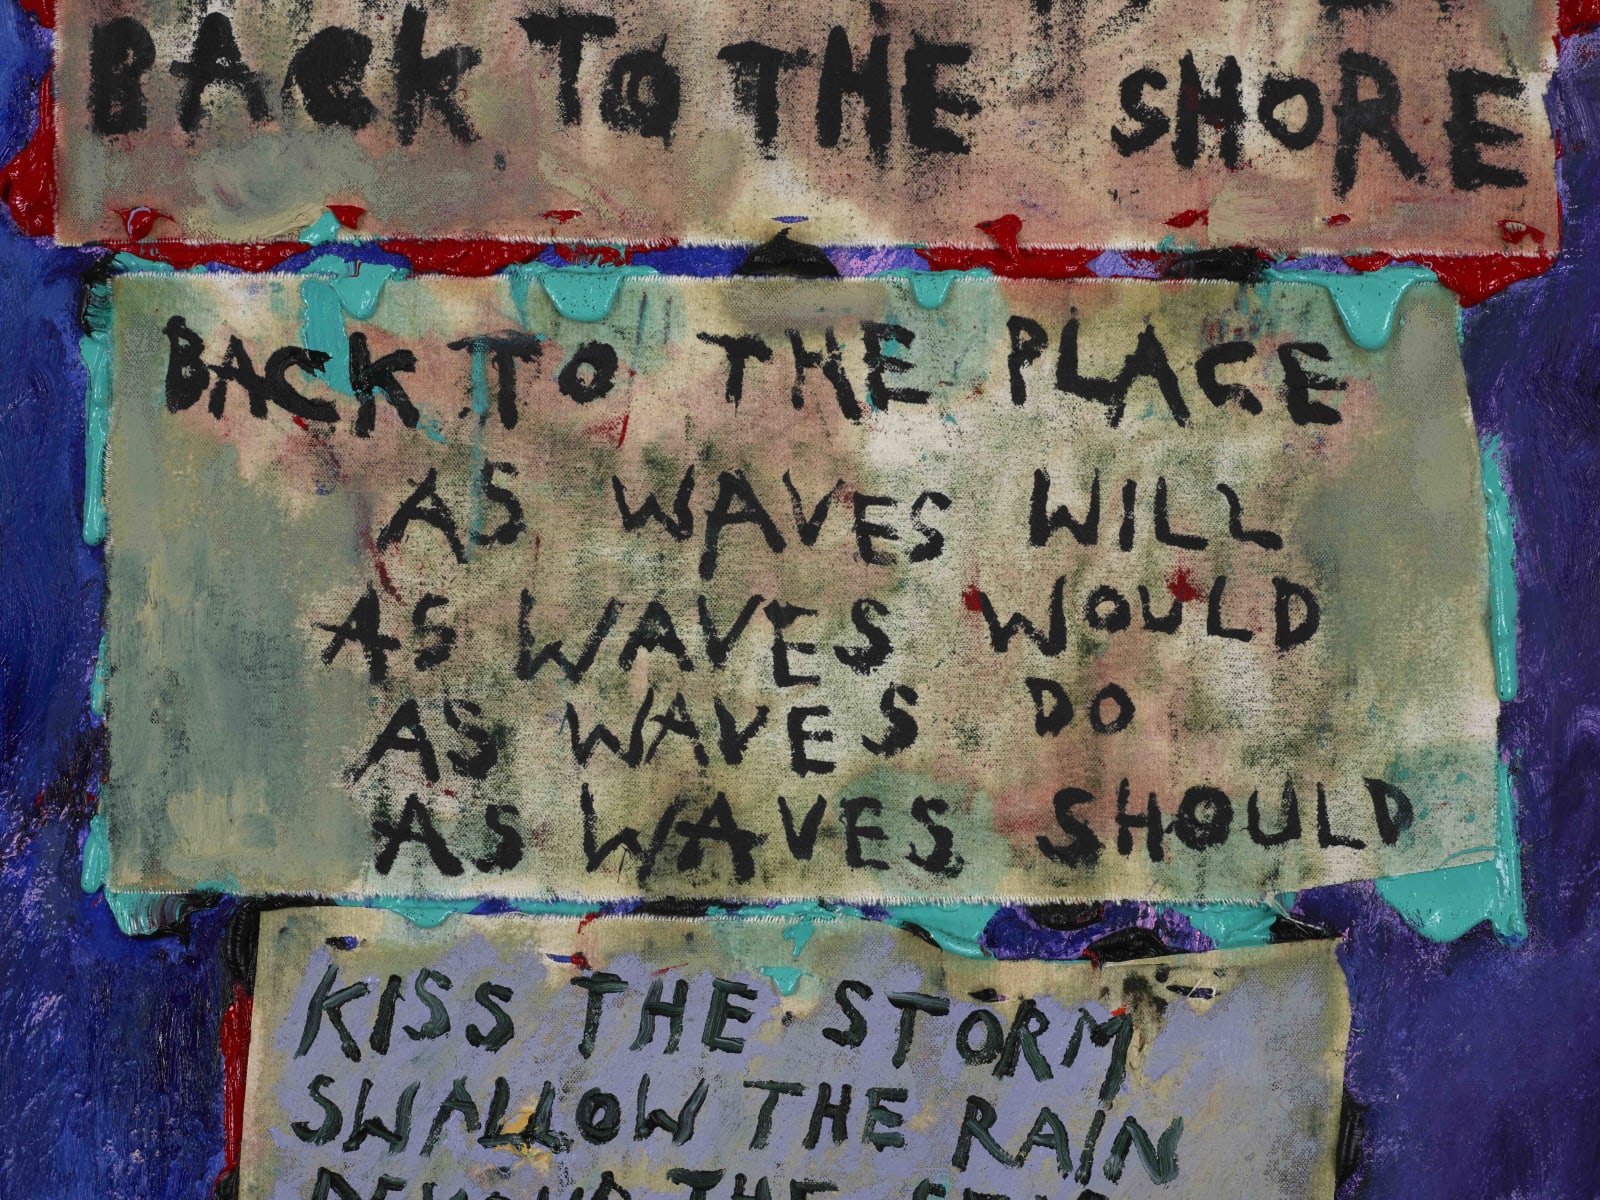 BACK TO THE SHORE
BACK TO THE PLACE
AS WAVES WILL
AS WAVES WOULD
AS WAVES DO
AS WAVES SHOULD
KISS THE STORM
SWALLOW THE RAIN
THE